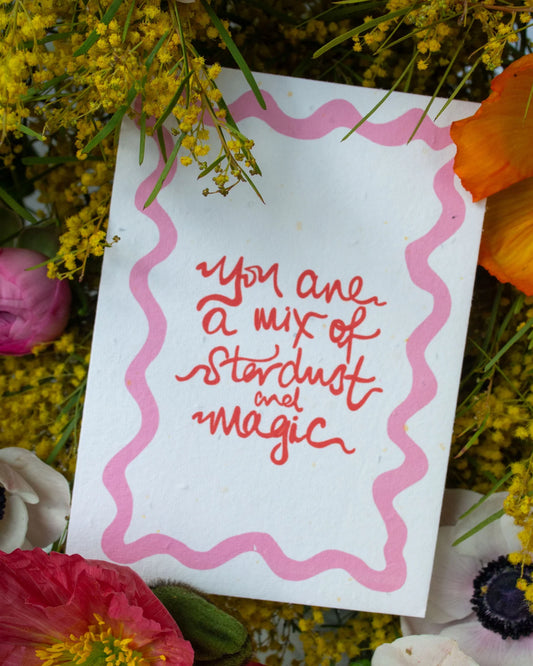 You are
a mix of
Stardust
and
magic